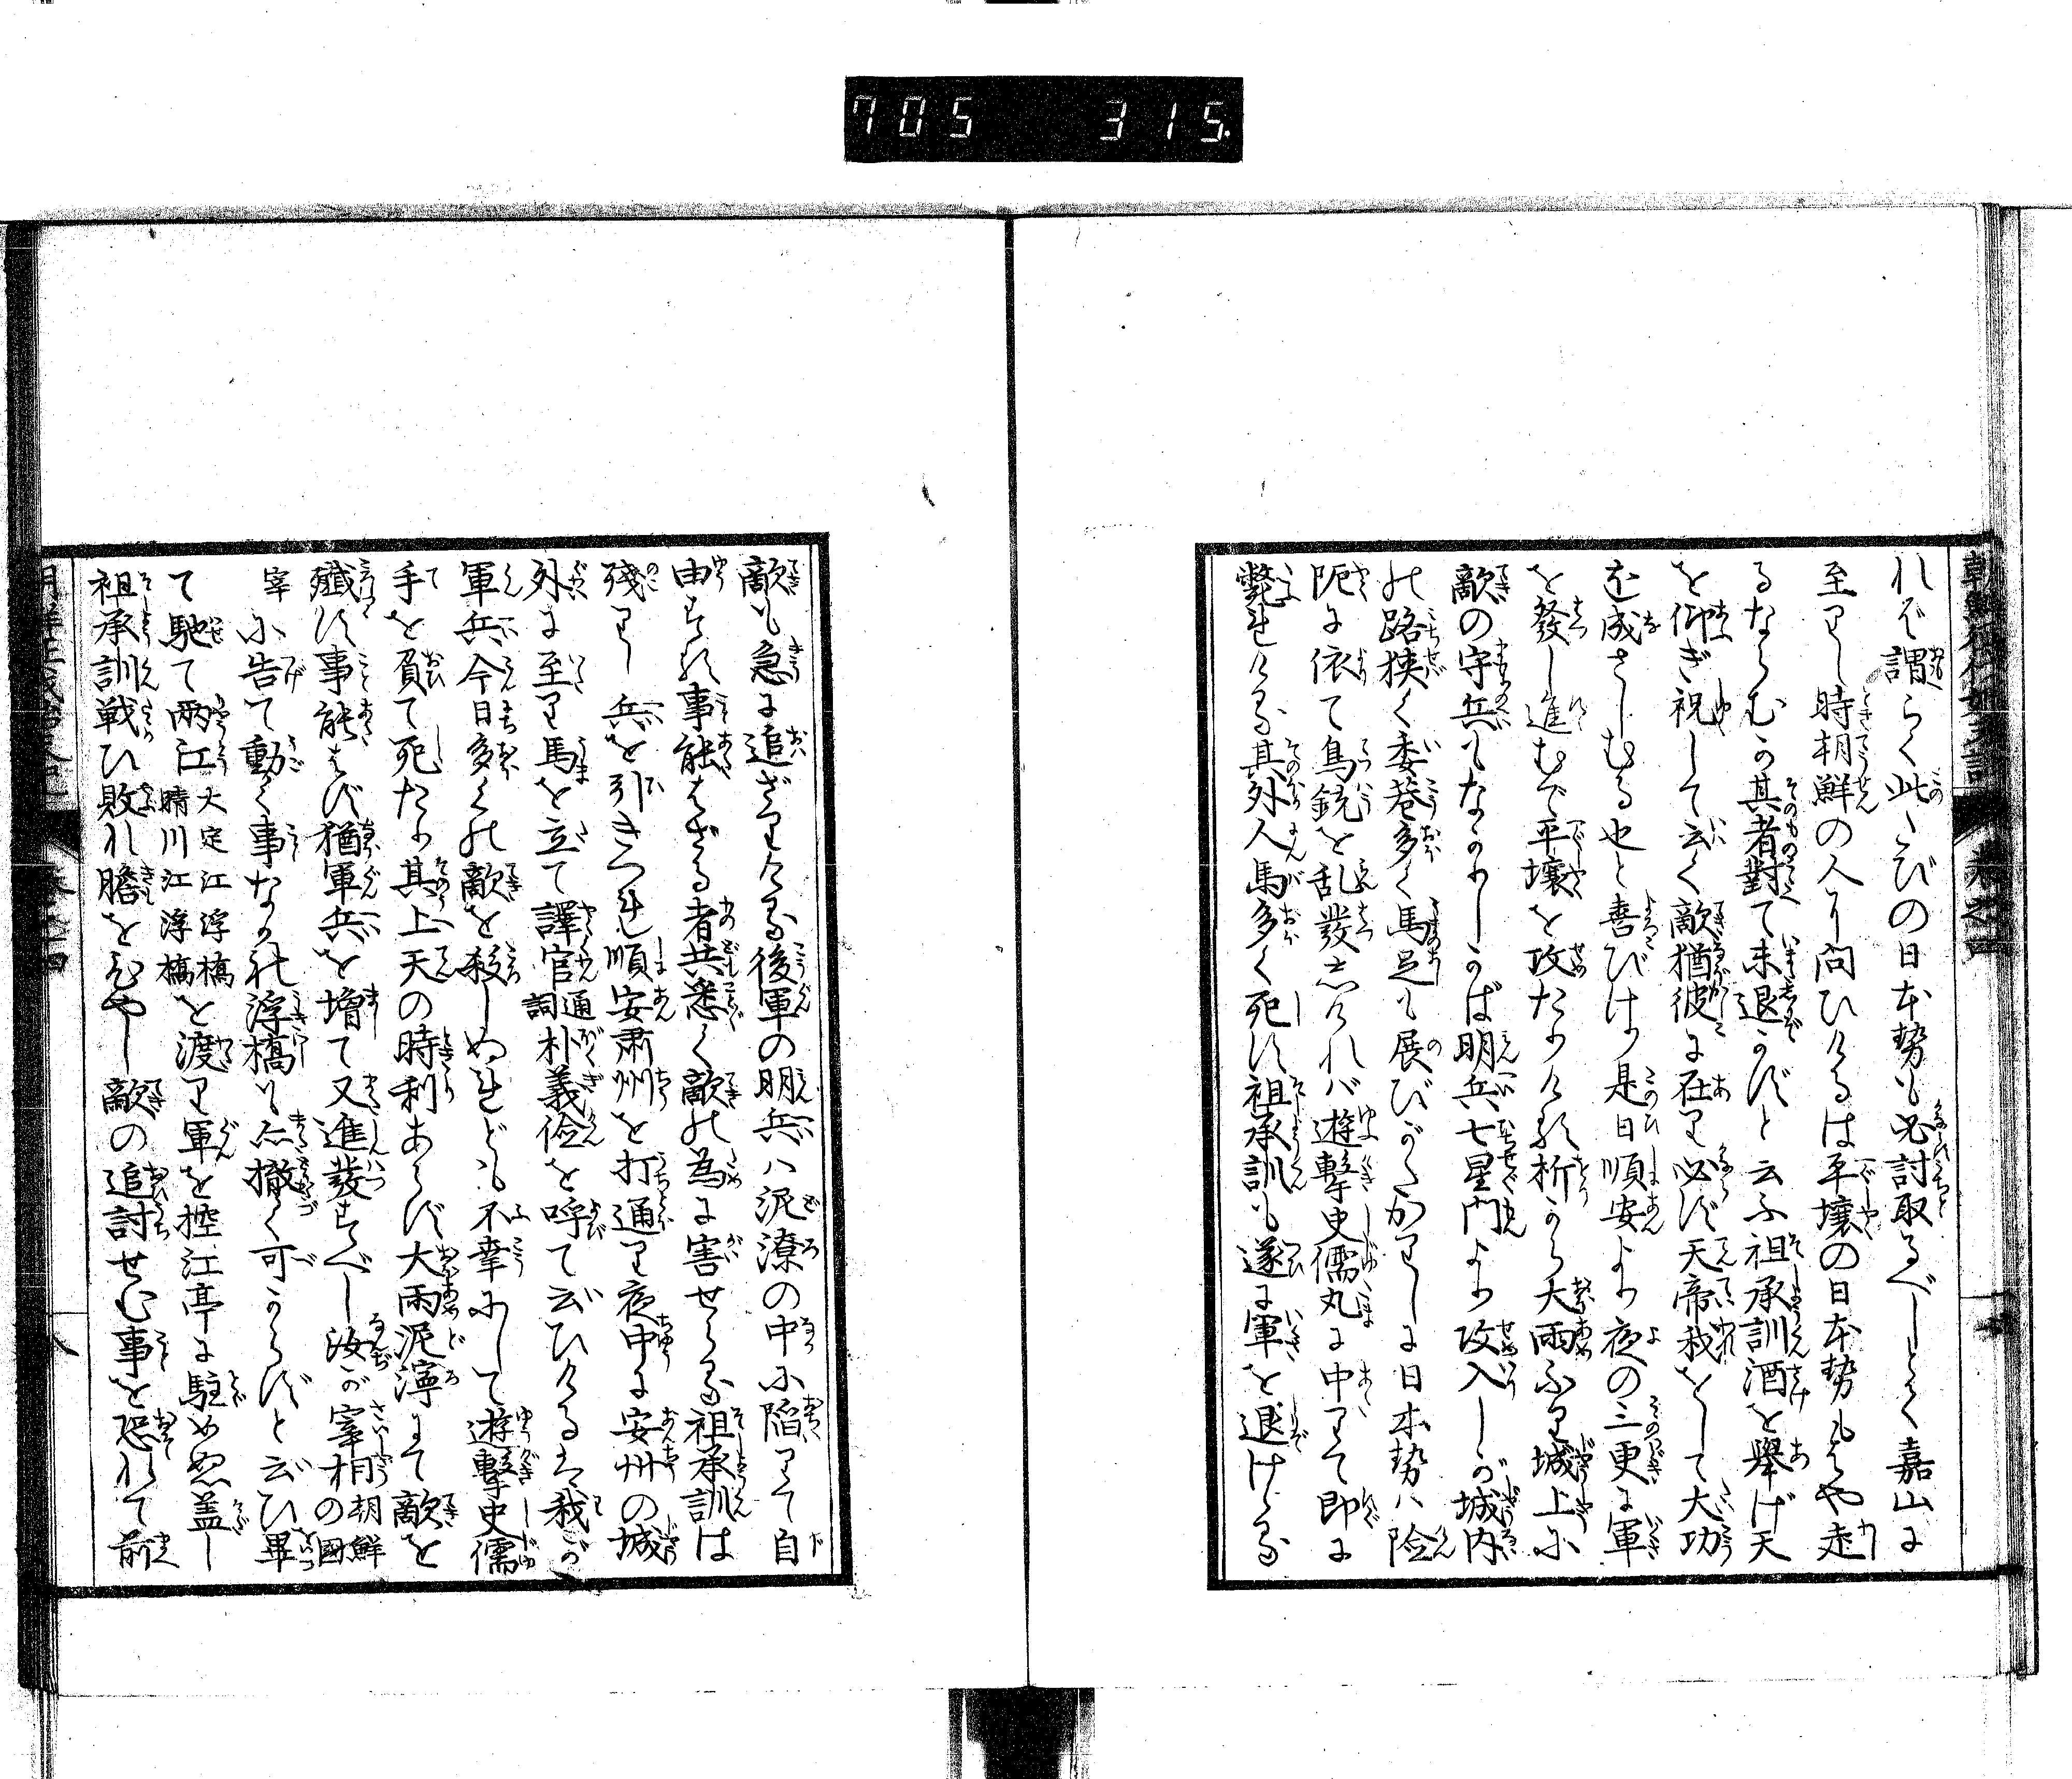 705 315
れば謂らく此たびの日本勢も必討取るべしとて嘉山に
至りし時朝鮮の人に問ひけるは平壌の日本勢もはや走
るならむか其者對て未退かずと云ふ祖承訓酒を擧げ天
を仰ぎ祝して云く敵猶彼に在り必ず天帝我をして大功
を成さしむる也と喜びけり是日順安より夜の三更に軍
を發し進むで平壌を攻たりける折から大雨ふり城上に
敵の守兵もなかりしかば明兵七星門より攻入しが城内
の路狭く委巷多く馬足も展びがたかりしに日本勢ハ險
阨に依て鳥銃を乱發しけれバ遊擊史儒丸に中りて即に
斃れける其外人馬多く死す祖承訓も遂に軍を退けける
敵も急に追ざりける後軍の明兵ハ泥潦の中に陥りて自
由する事能はざる者共悉く敵の為に害せらる祖承訓は
殘りし兵を引きつれ順安肅州を打通り夜中に安州の城
外に至り馬を立て譯官通詞朴義儉を呼て云ひけるは我が
軍兵今日多くの敵を殺しぬれども不幸にして遊擊史儒
手を負て死たり其上天の時利あらず大雨泥濘にて敵を
殲す事能はず猶軍兵を增て又進發すべし汝が宰相朝鮮の國
宰に告て動く事なかれ浮橋も亦撤く可からずと云ひ畢
て馳て兩江大定江浮橋晴川江浮橋を渡り軍を控江亭に駐めぬ蓋し
祖承訓戰ひ敗れ膽をひやし敵の追討せむ事を恐れて前